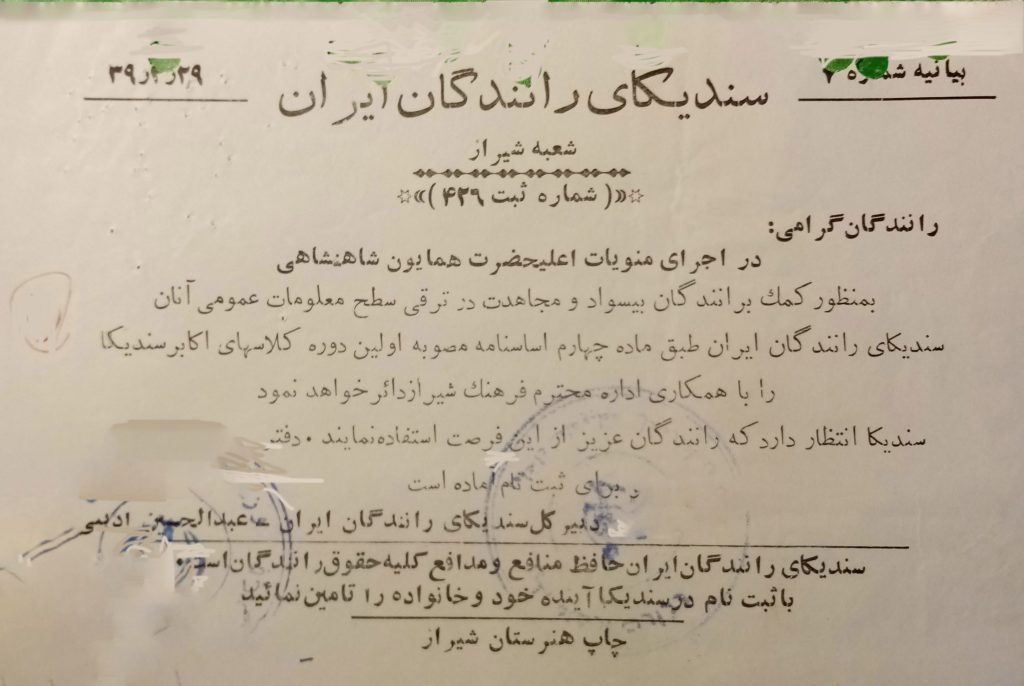 بیانیه شماره ۷
۳۹ر۲ر۲۹
سندیکای رانندگان ایران
شعبه شیراز
«(شماره ثبت ۴۲۹)»
رانندگان گرامی:
در اجرای منویات اعلیحضرت همایون شاهنشاهی
بمنظور کمك برانندگان بیسواد و مجاهدت در ترقی سطح معلومات عمومی آنان
سندیکای رانندگان ایران طبق ماده چهارم اساسنامه مصوبه اولین دوره کلاسهای اکابر سندیکا
را با همکاری اداره محترم فرهنك شیراز دائر خواهد نمود
سندیکا انتظار دارد که رانندگان عزیز از این فرصت استفاده نمایند . دفتر
برای ثبت نام آماده است
دبیر کل سندیکای رانندگان ایران - عبدالحسین
سندیکای رانندگان ایران حافظ منافع و مدافع کلیه حقوق رانندگان است .
با ثبت نام در سندیکا آینده خود و خانواده را تامین نمائید
چاپ هنرستان شیراز